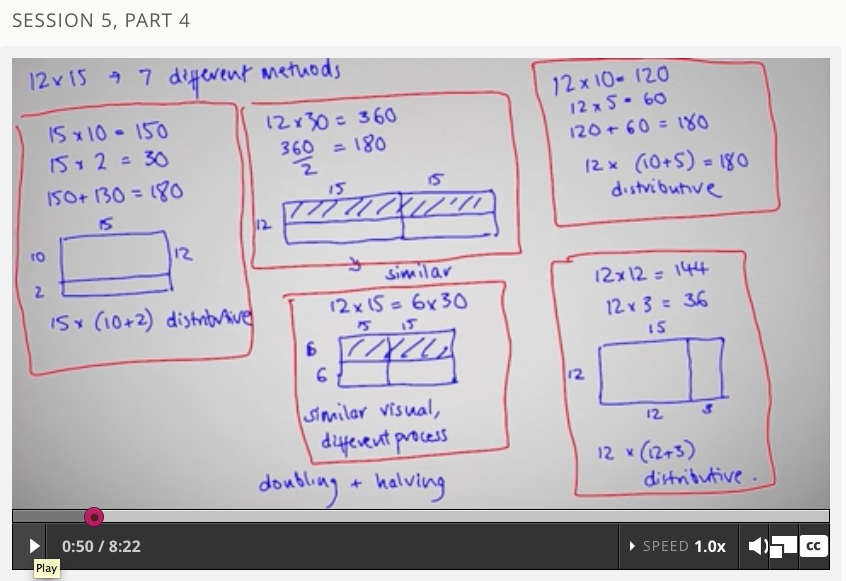 SESSION 5, PART 4
12x15 → 7 different methods
15 x 10 = 150
15 x 2 = 30
150+ 130 = 180
15
10
12
2
15 x (10+2) distributive
12 x 30 = 360
360
2
= 180
15
15
12
similar
12 x 15 = 6 x 30
15
15
6
6
similar visual,
different process
doubling + halving
12 x 10 = 120
12 x 5 = 60
120 + 60 = 180
12 x (10+5) = 180
distributive
12x12 = 144
12 x 3 = 36
15
12
12
3
12 x (12+3)
distributive.
0:50 / 8:22
SPEED 1.0x
cc
Play